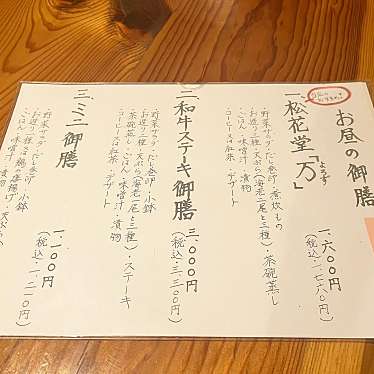 お昼の御膳
一、松花堂「万」
よろず
一、六〇〇円
(税込一、七六〇円)
野菜サラダ・だし巻卵・煮炊もの
お造り二種・天ぷら(海老一尾と三種)・茶碗蒸し
ごはん・味噌汁・漬物
・コーヒー又は紅茶・デザート
二、和牛ステーキ御膳
三、〇〇〇円
(税込三、三〇〇円)
野菜サラダ・だし巻卵・小鉢
お造り二種・天ぷら(海老一尾と三種)・ステーキ
茶碗蒸し・ごはん・味噌汁・漬物
・コーヒー又は紅茶・デザート
三、ミニ御膳
一、一〇〇円
(税込一、二一〇円)
野菜サラダ・だし巻卵・小鉢
お造り二種・鶏の唐揚げ・天ぷら
ごはん・味噌汁・漬物